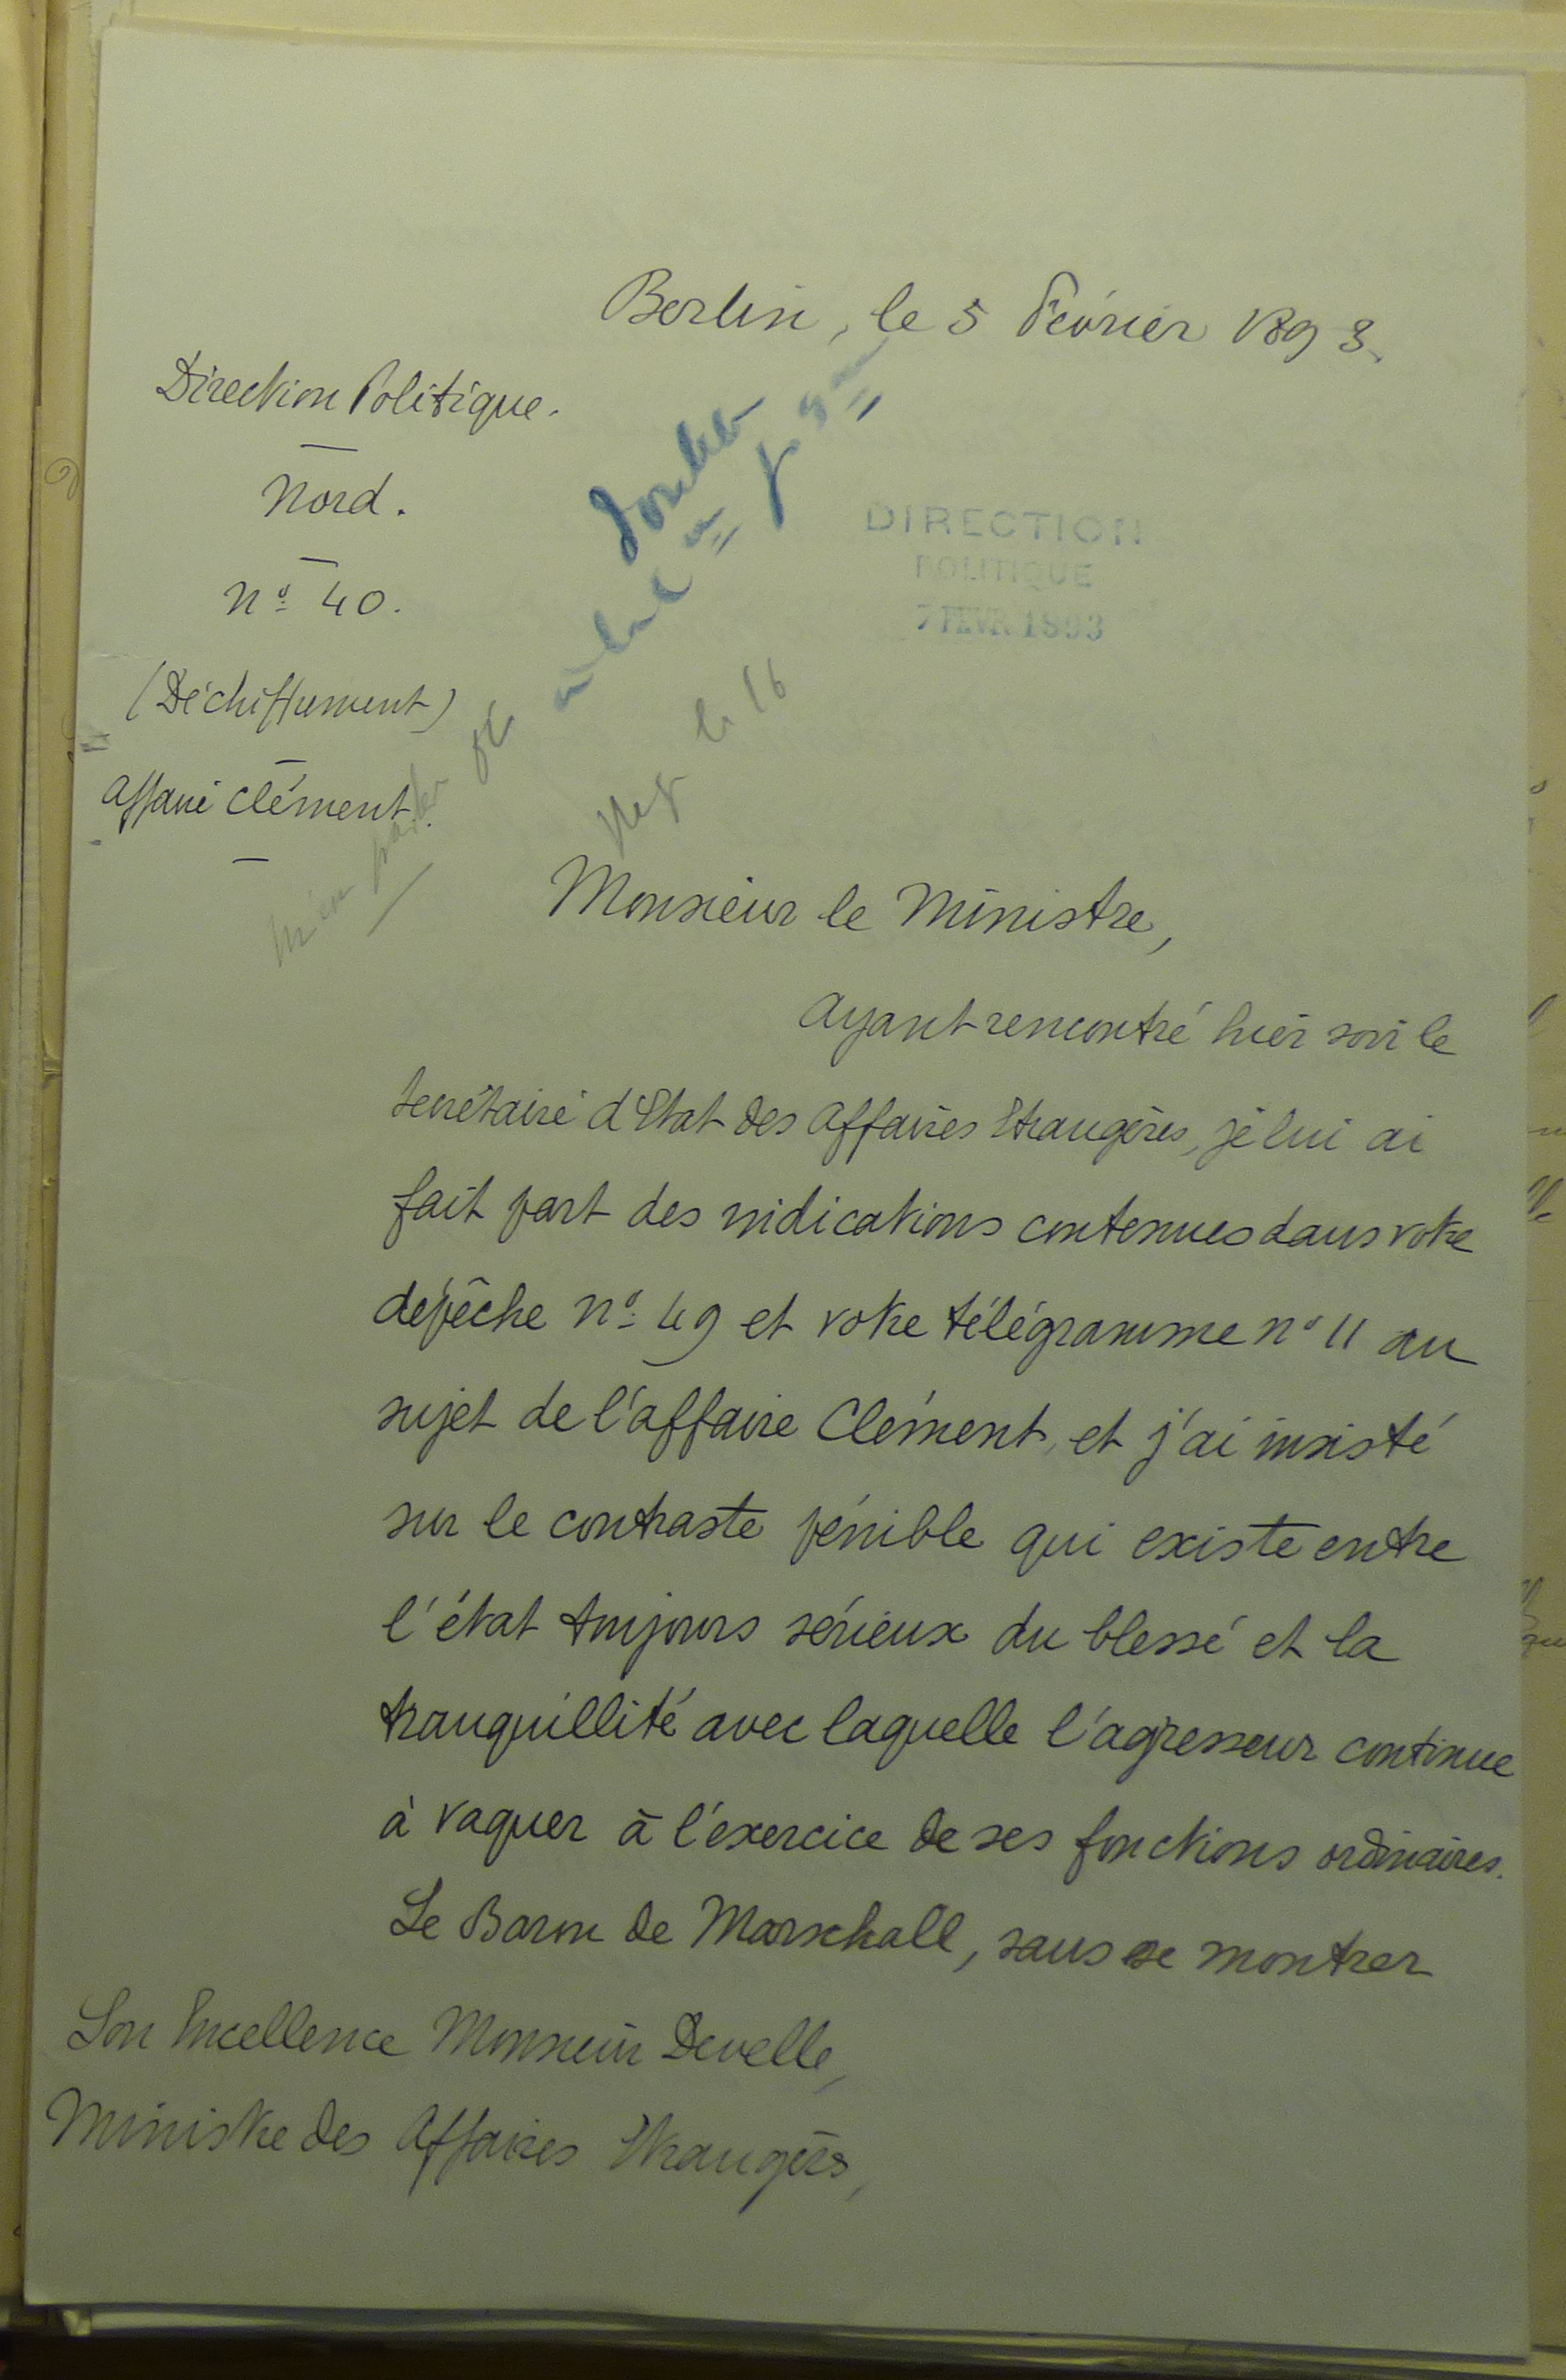 Berlin, le 5 Février 1893.
Direction Politique.
Nord.
DIRECTION
POLITIQUE
7 FEVR 1893
Nº 40.
(Déchiffrement)
Affaire Clément.
Monsieur le Ministre,
Ayant rencontré hier soir le
Secrétaire d'Etat des Affaires Etrangères, je lui ai
fait part des indications contenues dans votre
dépêche nº 49 et votre télégramme nº 11 au
sujet de l'affaire Clément, et j'ai insisté
sur le contraste pénible qui existe entre
l'état toujours sérieux du blessé et la
tranquillité avec laquelle l'agresseur continue
à vaquer à l'exercice de ses fonctions ordinaires.
Le Baron de Marschall, sans se montrer
Son Excellence Monsieur Develle,
Ministre des Affaires Etrangères,